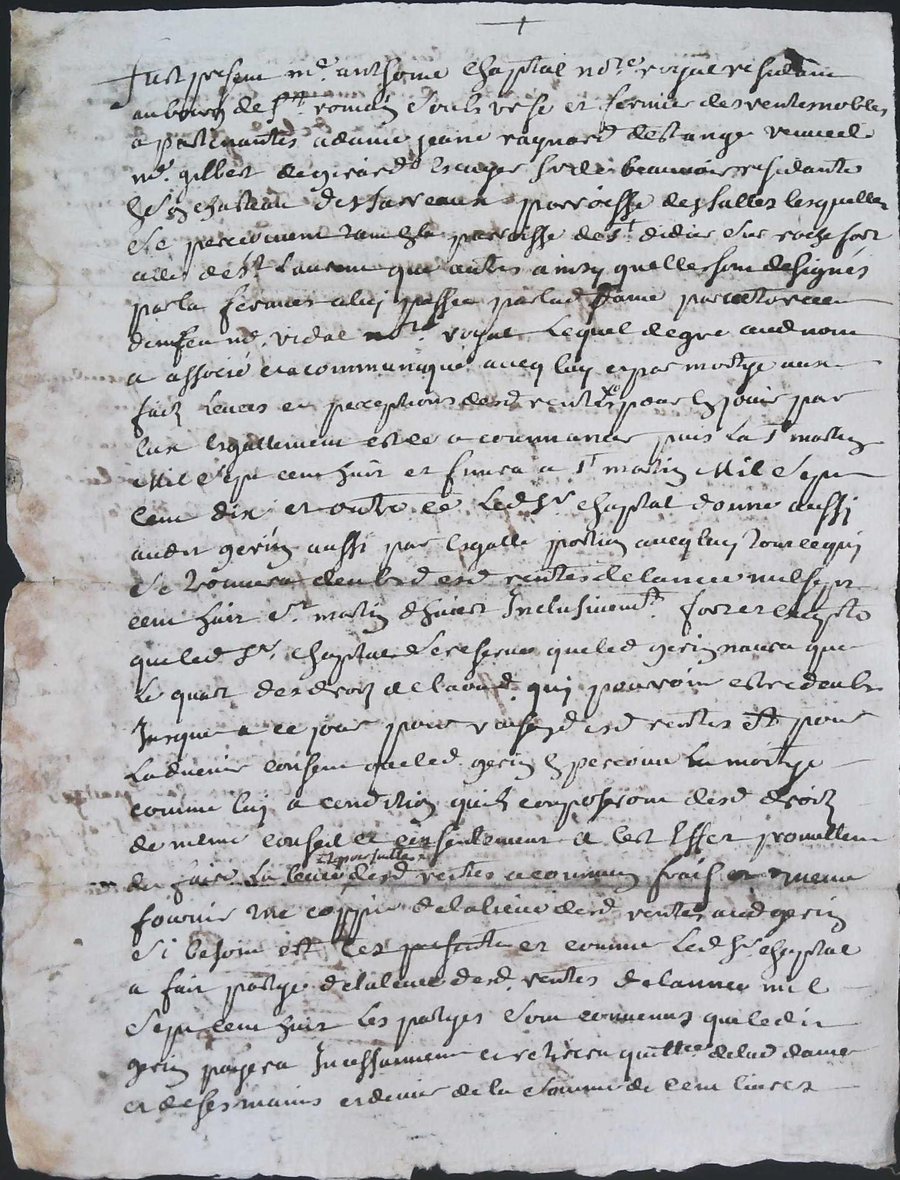 +
fust presens me anthoine chaptal nore royal residant
au bourg de st romain soubs urfe et fermie des rentes nobles
apartenantes a dame jeane raynard destange veuve de
me gilbert de girard escuyer sr de beauvoir residante
en chateau des farreaux parroisse des salles lesquelles
se percoivent tant en la parroisse de st didier sur rochefort
celle de st Laurent que autres ainsy quelles sont designés
par la ferme a luy passée par lad dame par acte receu
de feu me vidal nore royal Lequel de gre aud nom
a associé et acommuniqué avecq luy et par moitye aux
fait Levées et perceptions desd rentes pour en jouir par
eux esgallement et ce a commancer puis La st martin
Mil sept cent huit et finira a st martin Mil sept
cent dix et outre ce Led sr chaptal donne aussi
audit gerin aussi par esgalle portion avecq luy tout ce qui
se trouvera deub d esd rentes de lannee mil sept
cent huit st martin dhiver Inclusivemt. fors et excepte
que led sr. chaptal se reserve que led gerin naura que
Le quart des droitz de laoud. qui pouroit estre deubs
Jusque a ce jour pour raison d esd rentes et pour
Ladvenir consent que led gerin en percoive La moitye
comme luy a condition quilz composeront desd droitz
de meme conseil et consentement a cet Effet promettent
de faire La levée desd rentes a commun frais et mesme
et poursuittes
fournir une coppie de la lieve desd rentes aud gerin
si besoin est et comme Led sr chaptal
a fait partye de la levée desd. rentes de lannee mil
sept cent huit les partyes sont convenus que ledit
gerin payera Incessamment et retirera quittce de lad dame
et de ses mains et denier de la somme de cent livres